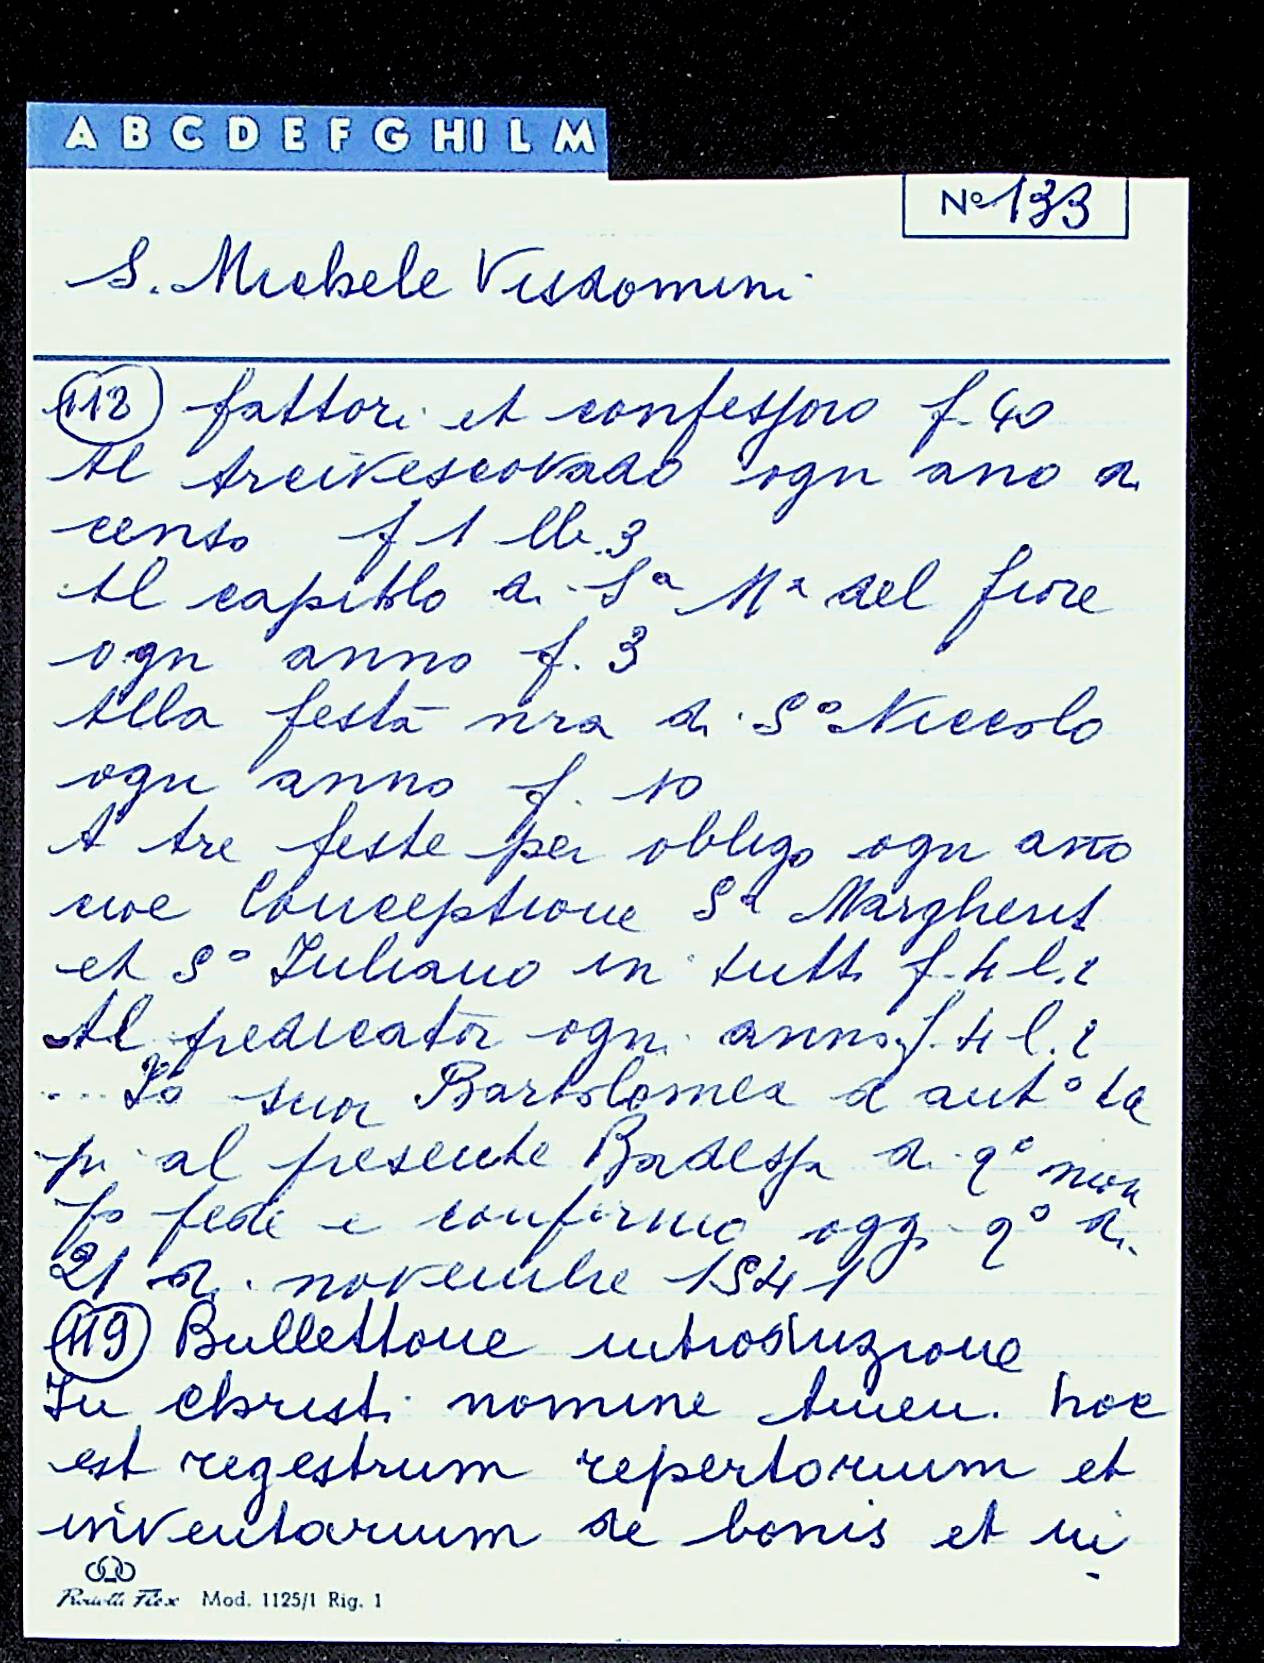 A B C D E F G HI L M
Nº 133
S. Michele Visdomini
118 fattori et confessoro f. 40
Al Arcivescovado ogni ano di
censo f 1 lb. 3
Al capitolo di Sª Mª del fiore
ogni anno f. 3
Alla festa nra di Sº Niccolo
ogni anno f. 10
A tre feste per obligo ogni ano
cioe Conceptione Sª Margherit
et Sº Juliano in tutti f. 4 l. 2
Al predicator ogni anno f. 4 l. 2
... Io suor Bartolomea d antº
al presente Badessa di qº mon
fo fede e confirmo oggi qº di
21 di novembre 1541
119 Bullettone introduzione
In Christi nomine Amen. hoc
est regestrum repertorium et
inventarium de bonis et in
Mod. 1125/1 Rig. 1